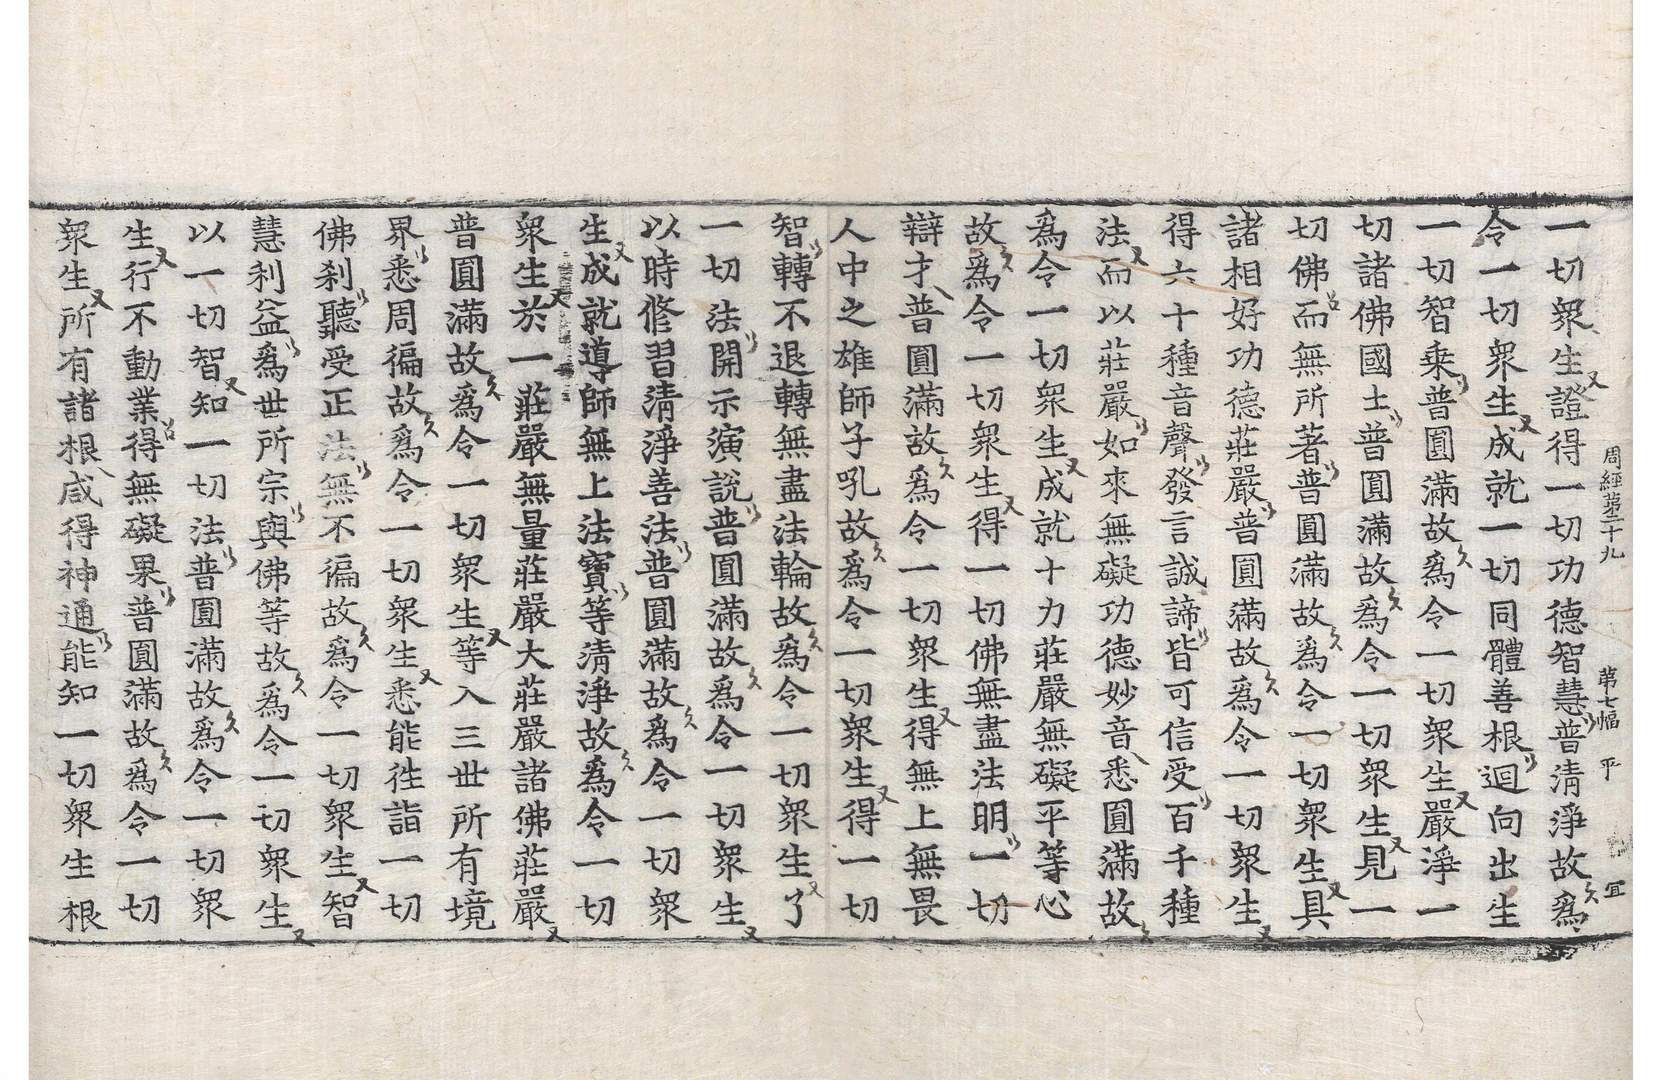 周經第二十九　第七幅　平　宜
一切衆生證得一切功德智慧普淸淨故爲
令一切衆生成就一切同體善根迴向出生
一切智乗普圓滿故爲令一切衆生嚴淨一
切諸佛國土普圓滿故爲令一切衆生見一
切佛而無所著普圓滿故爲令一切衆生具
諸相好功德莊嚴普圓滿故爲令一切衆生
得六十種音聲發言誠諦皆可信受百千種
法而以莊嚴如來無礙功德妙音悉圓滿故
爲令一切衆生成就十力莊嚴無礙平等心
故爲令一切衆生得一切佛無盡法明一切
辯才普圓滿故爲令一切衆生得無上無畏
人中之雄師子吼故爲令一切衆生得一切
智轉不退轉無盡法輪故爲令一切衆生了
一切法開示演說普圓滿故爲令一切衆生
以時修習淸淨善法普圓滿故爲令一切衆
生成就導師無上法寶等淸淨故爲令一切
衆生於一莊嚴無量莊嚴大莊嚴諸佛莊嚴
普圓滿故爲令一切衆生等入三世所有境
界悉周徧故爲令一切衆生悉能徃詣一切
佛刹聽受正法無不徧故爲令一切衆生智
慧利益爲世所宗與佛等故爲令一切衆生
以一切智知一切法普圓滿故爲令一切衆
生行不動業得無礙果普圓滿故爲令一切
衆生所有諸根咸得神通能知一切衆生根